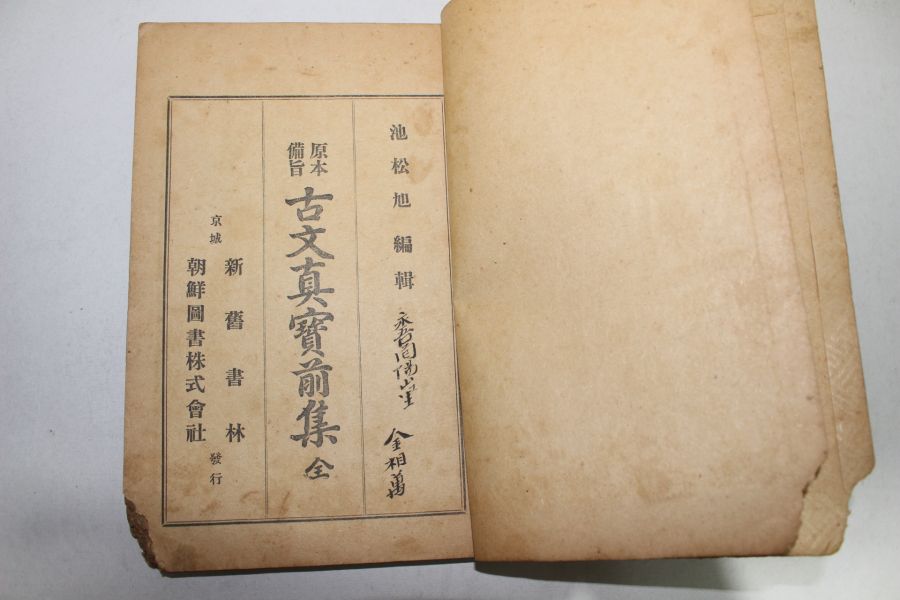 池松旭編輯
金相萬
原本
備旨
古文真寶前集 全
京城
新舊書林
朝鮮圖書株式會社
發行